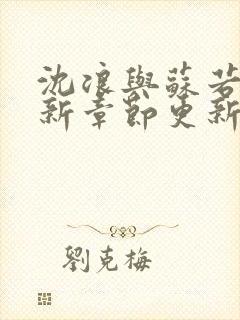 沈浪與蘇若
新章節更新
劉克梅